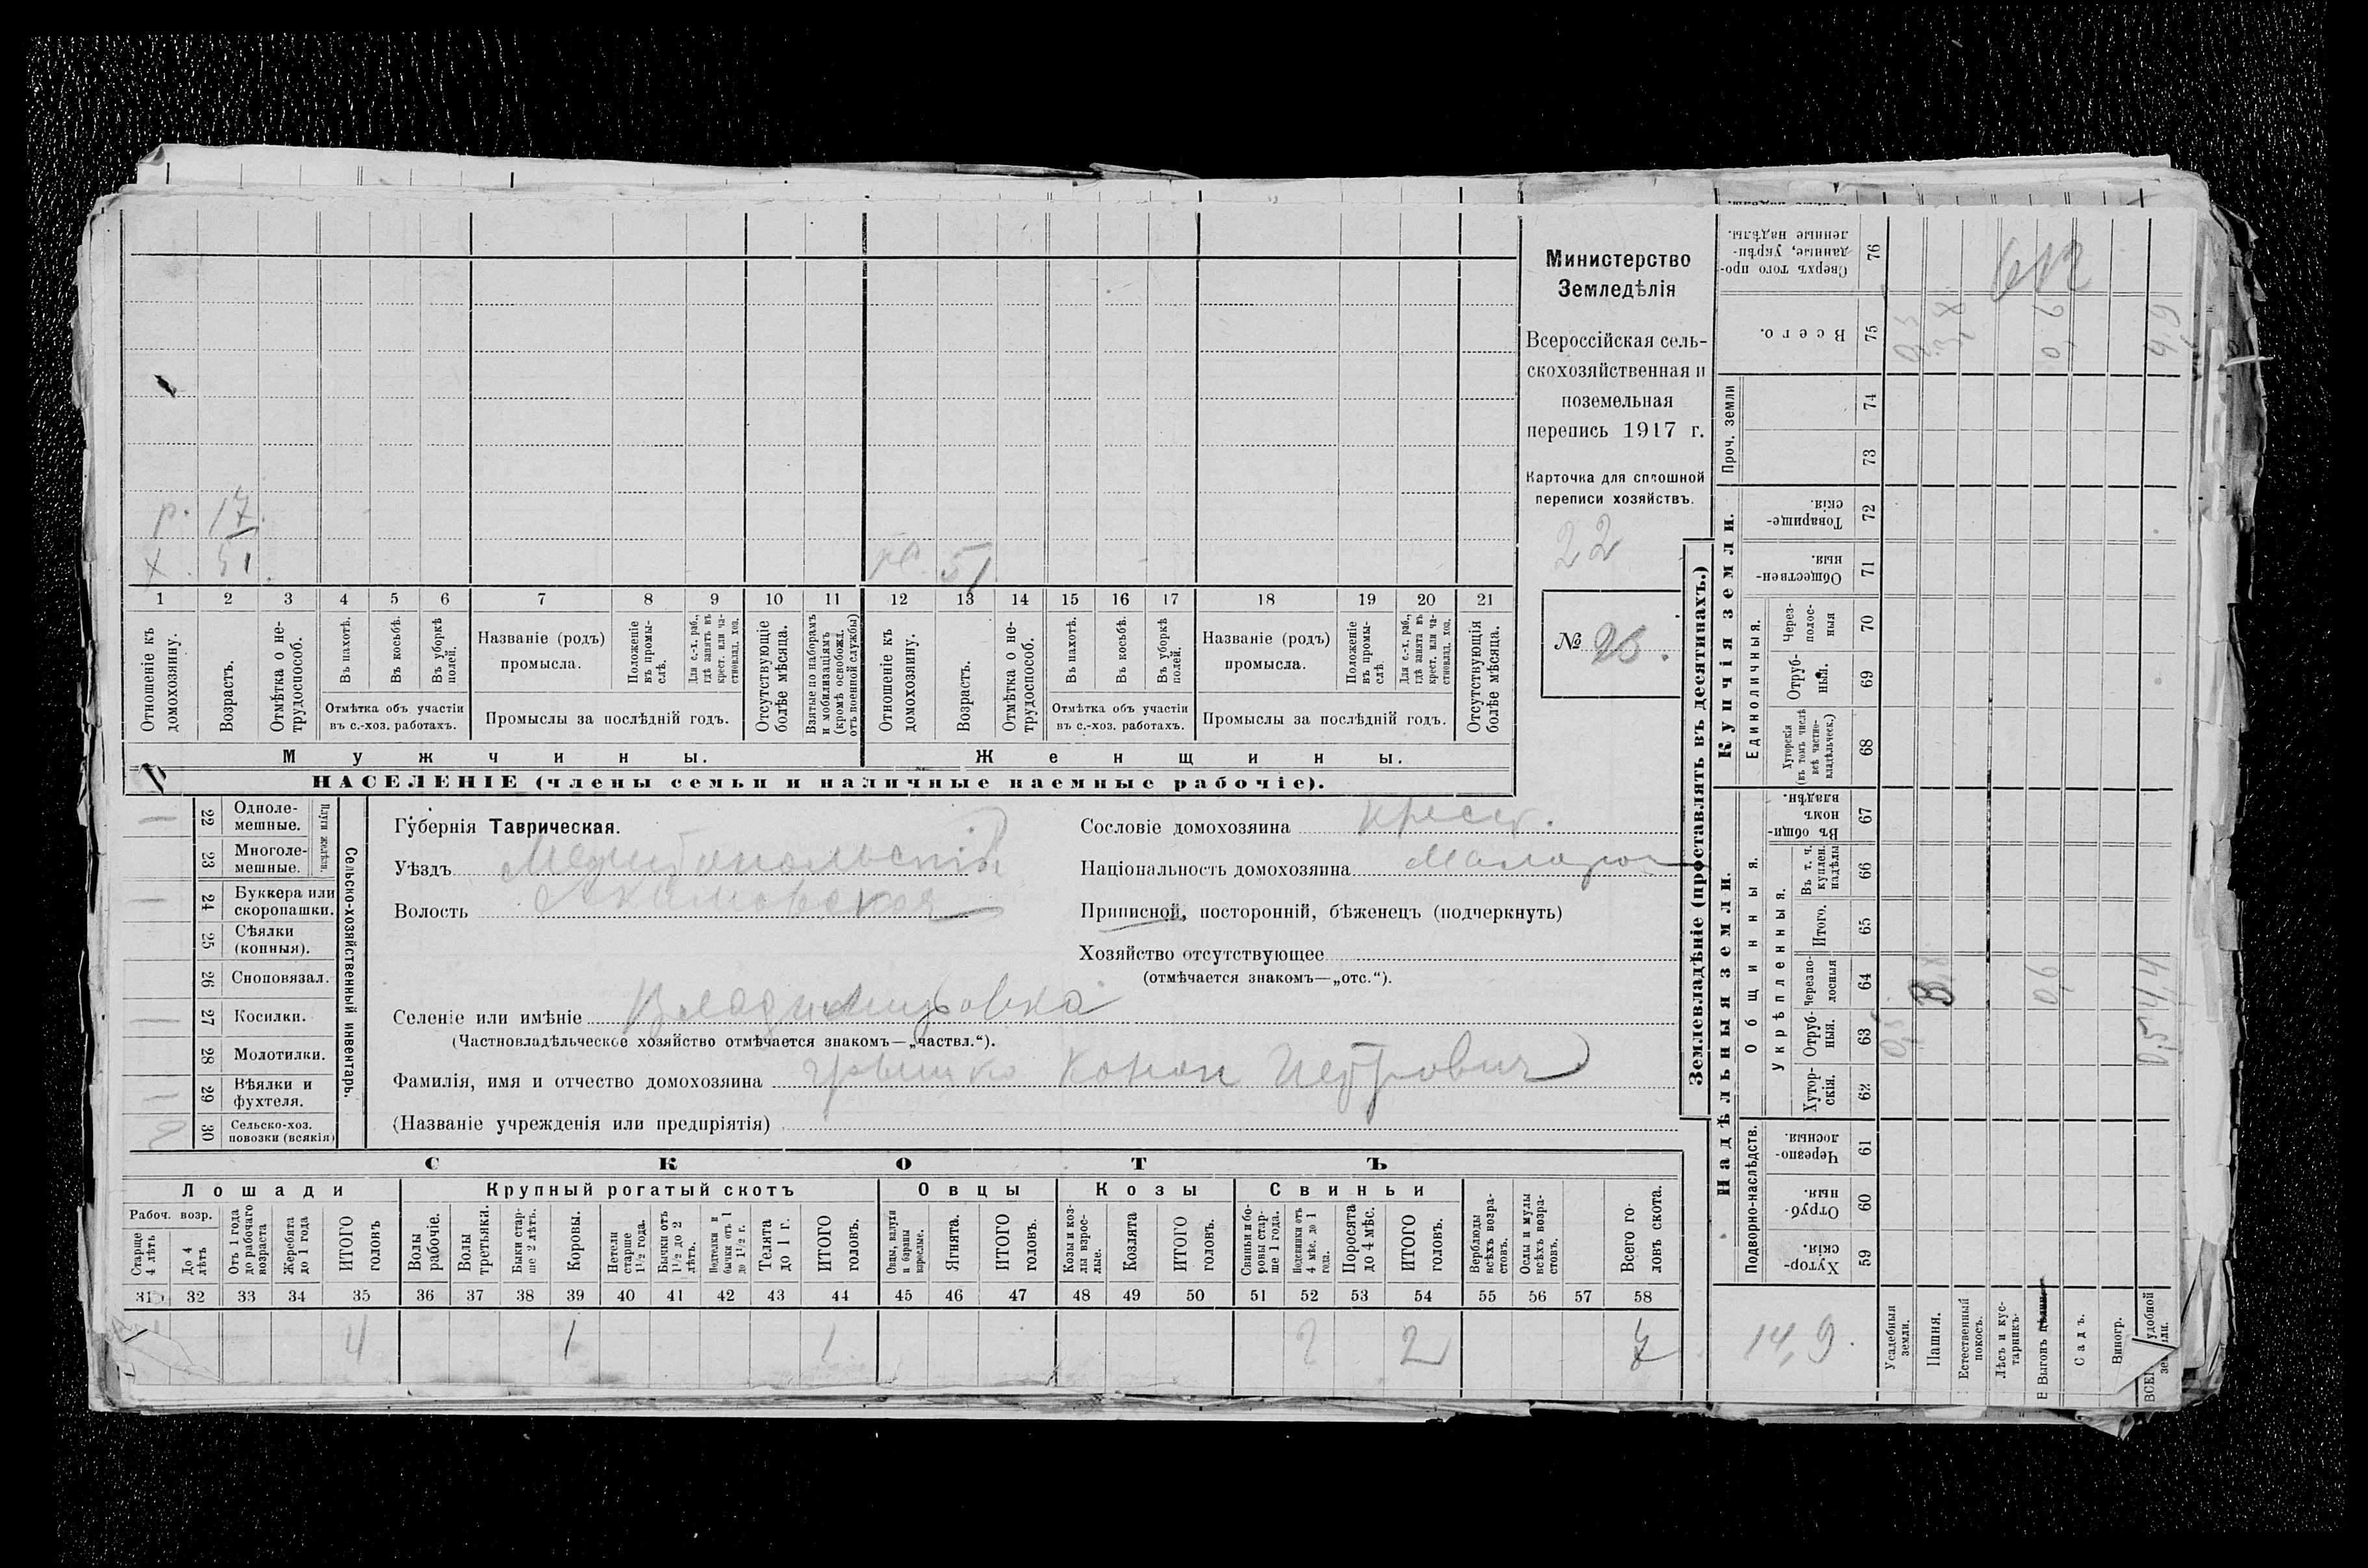 р. 17.
х. 51.
ж. 51
1 2 3 4 5 6 7 8 9 10 11 12 13 14 15 16 17 18 19 20 21
Отношеніе къ домохозяину.
Возрастъ.
Отмѣтка о не-
трудоспособ.
Въ пахотѣ.
Въ косьбѣ.
Въ уборкѣ полей.
Отмѣтка объ участіи
въ с.-хоз. работахъ.
Названіе (родъ)
промысла.
Положеніе въ промы-
слѣ.
Для с.-х. раб., гдѣ занятъ въ крест. или ча-
стновлад. хоз.
Промыслы за послѣдній годъ.
Отсутствующіе болѣе мѣсяца.
Взятые по наборамъ и мобилизаціямъ (кромѣ освобожд. отъ военной службы)
Отношеніе къ домохозяину.
Возрастъ.
Отмѣтка о не-
трудоспособ.
Въ пахотѣ.
Въ косьбѣ.
Въ уборкѣ полей.
Отмѣтка объ участіи
въ с.-хоз. работахъ.
Названіе (родъ)
промысла.
Положеніе въ промы-
слѣ.
Для с.-х. раб., гдѣ занятъ въ крест. или ча-
стновлад. хоз.
Промыслы за послѣдній годъ.
Отсутствующія болѣе мѣсяца.
Мужчины.
Женщины.
НАСЕЛЕНІЕ (члены семьи и наличные наемные рабочіе).
Министерство
Земледѣлія
Всероссійская сель-
скохозяйственная и
поземельная
перепись 1917 г.
Карточка для сплошной
переписи хозяйствъ.
22
№ 23.
22 Одноле-
мешные.
23 Многоле-
мешные.
Плуги желѣзн.
24 Буккера или
скоропашки.
25 Сѣялки
(конныя).
26 Сноповязал.
27 Косилки.
28 Молотилки.
29 Вѣялки и
фухтеля.
30 Сельско-хоз.
повозки (всякія)
Сельско-хозяйственный инвентарь.
Губернія Таврическая.
Уѣздъ Мелитопольскій
Волость Акимовская
Селеніе или имѣніе Владимировка
(Частновладѣльческое хозяйство отмѣчается знакомъ—„частвл.“).
Фамилія, имя и отчество домохозяина Грышко Конон Петрович
(Названіе учрежденія или предпріятія)
Сословіе домохозяина крест.
Національность домохозяина Малорос
Приписной, посторонній, бѣженецъ (подчеркнуть)
Хозяйство отсутствующее
(отмѣчается знакомъ—„отс.“).
СКОТЪ
Лошади
Крупный рогатый скотъ
Овцы
Козы
Свиньи
Рабоч. возр.
Старше 4 лѣтъ
До 4 лѣтъ
Отъ 1 года до рабочаго возраста
Жеребята до 1 года
ИТОГО головъ
Волы рабочіе.
Волы третьяки.
Быки стар-
ше 2 лѣтъ.
Коровы.
Нетели старше 1½ года.
Бычки отъ 1½ до 2 лѣтъ.
Подтелки и бычки отъ 1 до 1½ г.
Телята до 1 г.
ИТОГО головъ.
Овцы, валухи и бараны взрослые.
Ягнята.
ИТОГО головъ.
Козы и коз-
лы взрос-
лые.
Козлята
ИТОГО головъ.
Свиньи и бо-
ровы стар-
ше 1 года.
Подсвинки отъ 4 мѣс. до 1 года.
Поросята до 4 мѣс.
ИТОГО головъ.
Верблюды всѣхъ возра-
стовъ.
Ослы и мулы всѣхъ возра-
стовъ.
Всего го-
ловъ скота.
31 32 33 34 35 36 37 38 39 40 41 42 43 44 45 46 47 48 49 50 51 52 53 54 55 56 57 58
4 1 1 2 2 7
Землевладѣніе (проставлять въ десятинахъ.)
Надѣльныя земли.
Купчія земли.
Проч. земли
Подворно-наслѣдств.
Общинныя.
Укрѣпленныя.
Единоличныя.
Сверхъ того про-
данные, укрѣп-
ленные надѣлы. 76
Всего. 75
74
73
Товарище-
скія 72
Обществен-
ныя. 71
Через-
полос-
ныя 70
Отруб-
ныя. 69
Хуторскія (въ томъ числѣ всѣ частно-
владѣльческ.) 68
Въ общи-
номъ владѣн. 67
Въ т. ч. куплен. надѣлы 66
Итого. 65
Черезпо-
лосныя 64
Отруб-
ныя. 63
Хутор-
скія. 62
Черезпо-
лосныя. 61
Отруб-
ныя. 60
Хутор-
скія. 59
14,9.
Усадебныя земли.
Пашня.
Естественный покосъ.
Лѣсъ и кус-
тарникъ.
Выгонъ
Садъ.
Виногр.
удобной
0,5
0,6
4,9
0,5
0,6
0,5 4,4